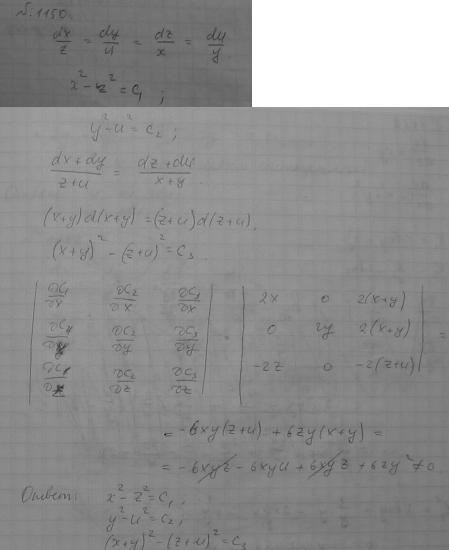 N: 1150.
dx/z = dy/u = dz/x = du/y
x² - z² = C₁ ;
y² - u² = C₂ ;
(dx + dy)/(z + u) = (dz + du)/(x + y) .
(x+y) d(x+y) = (z+u) d(z+u),
(x+y)² - (z+u)² = C₃ .
| ∂C₁/∂x ∂C₂/∂x ∂C₃/∂x | | 2x 0 2(x+y) |
| ∂C₁/∂y ∂C₂/∂y ∂C₃/∂y | = | 0 2y 2(x+y) | =
| ∂C₁/∂z ∂C₂/∂z ∂C₃/∂z | | -2z 0 -2(z+u) |
= -6xy(z+u) + 6zy(x+y) =
= -6xyz - 6xyu + 6xyz + 6zy² ≠ 0
Ответ: x² - z² = C₁ ;
y² - u² = C₂ ;
(x+y)² - (z+u)² = C₃